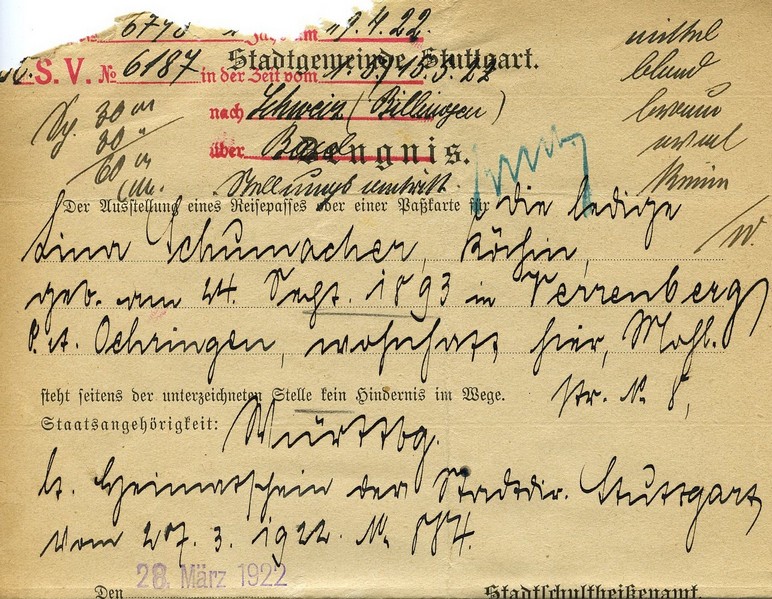 6743 am 19.4.22.
Stadtgemeinde Stuttgart.
S. V. № 6187 in der Zeit vom
nach Schweiz (Billingen)
über Basel
Zeugnis.
Sg. 30 M
30 "
60 M
Stellungsantritt.
mittel
blond
braun
oval
keine
Der Ausstellung eines Reisepasses oder einer Paßkarte für die ledige
Lina Schumacher, Köchin,
geb. am 24. Sept. 1893 in Verrenberg
O. A. Oehringen, wohnhaft hier, Mohl.
str. № 8,
steht seitens der unterzeichneten Stelle kein Hindernis im Wege.
Staatsangehörigkeit: Württbg.
lt. Heimatschein der Stadtdir. Stuttgart
vom 27. 3. 1922. №
Den 28. März 1922
Stadtschultheißenamt.